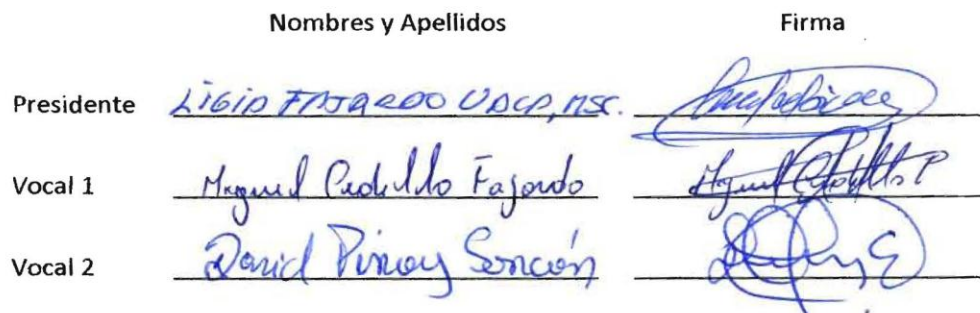 Nombres y Apellidos Firma
Presidente LIGIA FAJARDO VACA, MSC.
Vocal 1 Miguel Cedillo Fajardo Miguel Cedillo F
Vocal 2 David Pincay Sancán